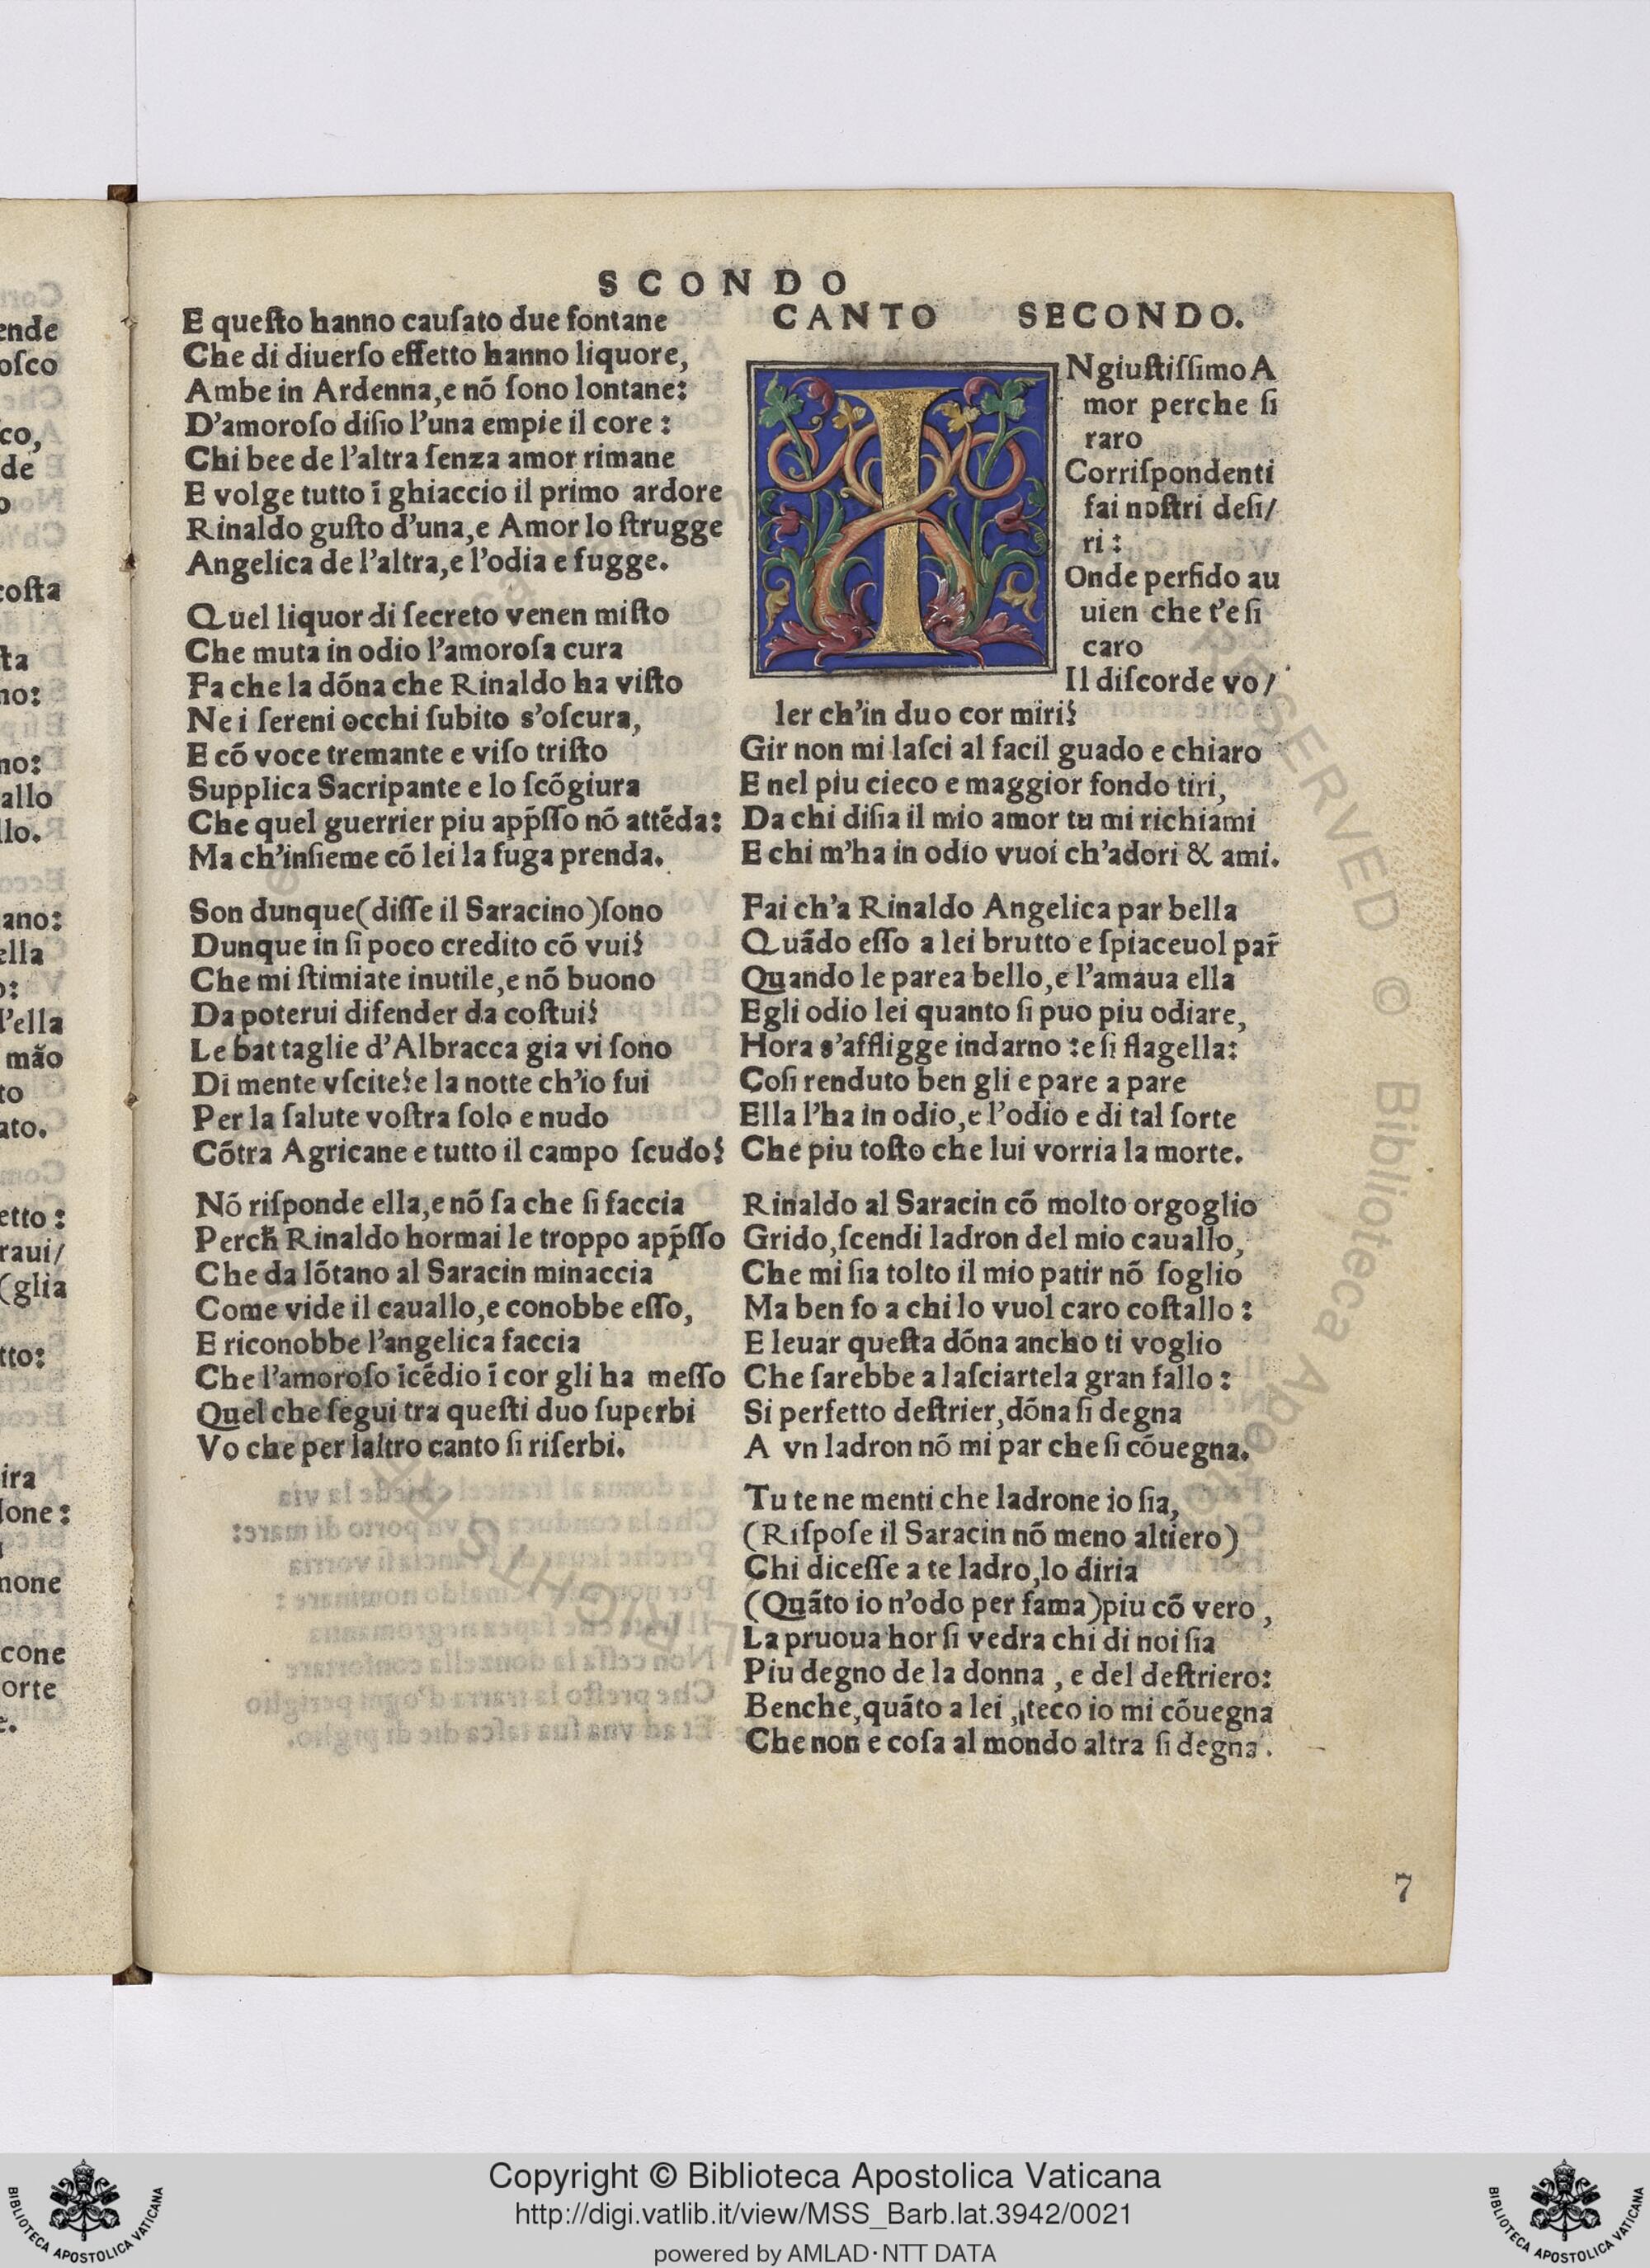 SCONDO
E queſto hanno cauſato due fontane
Che di diuerſo effetto hanno liquore,
Ambe in Ardenna,e nõ ſono lontane:
D'amoroſo diſio l'una empie il core :
Chi bee de l'altra ſenza amor rimane
E volge tutto ĩ ghiaccio il primo ardore
Rinaldo guſto d'una,e Amor lo ſtrugge
Angelica de l'altra,e l'odia e fugge.
Quel liquor di ſecreto venen miſto
Che muta in odio l'amoroſa cura
Fa che la dõna che Rinaldo ha viſto
Ne i ſereni occhi ſubito s'oſcura,
E cõ voce tremante e viſo triſto
Supplica Sacripante e lo ſcõgiura
Che quel guerrier piu app̃ſſo nõ attẽda:
Ma ch'inſieme cõ lei la fuga prenda.
Son dunque(diſſe il Saracino)ſono
Dunque in ſi poco credito cõ vui?
Che mi ſtimiate inutile,e nõ buono
Da poterui difender da coſtui?
Le battaglie d'Albracca gia vi ſono
Di mente vſcite?e la notte ch'io fui
Per la ſalute voſtra ſolo e nudo
Cõtra Agricane e tutto il campo ſcudo?
Nõ riſponde ella,e nõ ſa che ſi faccia
Perch̃ Rinaldo hormai le troppo app̃ſſo
Che da lõtano al Saracin minaccia
Come vide il cauallo,e conobbe eſſo,
E riconobbe l'angelica faccia
Che l'amoroſo ĩcẽdio ĩ cor gli ha meſſo
Quel che ſegui tra queſti duo ſuperbi
Vo che per laltro canto ſi riſerbi.
CANTO SECONDO.
INgiuſtiſſimo A
mor perche ſi
raro
Corriſpondenti
fai noſtri deſi/
ri :
Onde perfido au
uien che t'e ſi
caro
Il diſcorde vo/
ler ch'in duo cor miri?
Gir non mi laſci al facil guado e chiaro
E nel piu cieco e maggior fondo tiri,
Da chi diſia il mio amor tu mi richiami
E chi m'ha in odio vuoi ch'adori & ami.
Fai ch'a Rinaldo Angelica par bella
Quãdo eſſo a lei brutto e ſpiaceuol par̃
Quando le parea bello,e l'amaua ella
Egli odio lei quanto ſi puo piu odiare,
Hora s'affligge indarno :e ſi flagella:
Coſi renduto ben gli e pare a pare
Ella l'ha in odio,e l'odio e di tal ſorte
Che piu toſto che lui vorria la morte.
Rinaldo al Saracin cõ molto orgoglio
Grido,ſcendi ladron del mio cauallo,
Che mi ſia tolto il mio patir nõ ſoglio
Ma ben fo a chi lo vuol caro coſtallo :
E leuar queſta dõna ancho ti voglio
Che ſarebbe a laſciartela gran fallo :
Si perfetto deſtrier,dõna ſi degna
A vn ladron nõ mi par che ſi cõuegna.
Tu te ne menti che ladrone io ſia,
(Riſpoſe il Saracin nõ meno altiero)
Chi diceſſe a te ladro,lo diria
(Quãto io n'odo per fama)piu cõ vero ,
La pruoua hor ſi vedra chi di noi ſia
Piu degno de la donna , e del deſtriero:
Benche,quãto a lei ,teco io mi cõuegna
Che non e coſa al mondo altra ſi degna .
7
Copyright © Biblioteca Apostolica Vaticana
http://digi.vatlib.it/view/MSS_Barb.lat.3942/0021
powered by AMLAD·NTT DATA
BIBLIOTECA APOSTOLICA VATICANA
BIBLIOTECA APOSTOLICA VATICANA